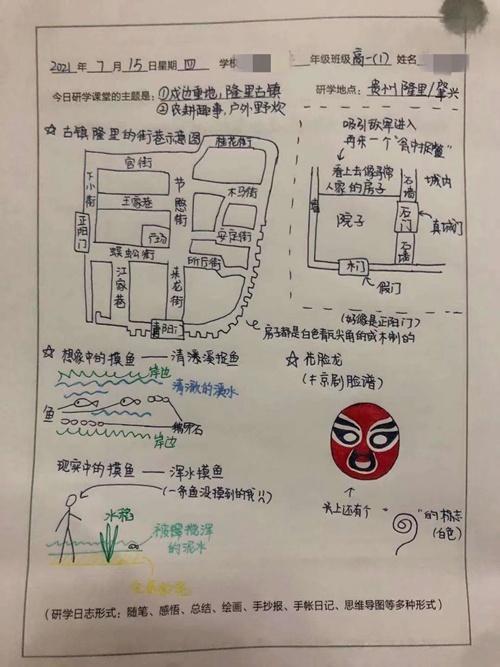 2021年 7月 15日星期 四 学校
年级班级 高一(1) 姓名
今日研学课堂的主题是: ①戍边重地,隆里古镇
②农耕趣事,户外野炊
研学地点: 贵州隆里/肇兴
☆古镇隆里的街巷示意图
桂花街
官街
下小街
王家巷
节愍街
木马街
正阳门
广场
安定街
蜈蚣街
所厅街
江家巷
来龙街
青阳门
房子都是白色有瓦尖角的或木制的
吸引敌军进入
再来一个“瓮中捉鳖”
看上去像寻常
人家的房子
石墙
城内
院子
石门
真城门
石墙
木门
假门
(好像是正阳门)
☆想象中的摸鱼——清濠溪捉鱼
岸边
清澈的溪水
鱼
鹅卵石
岸边
☆花脸龙
(≠京剧脸谱)
头上还有个“ ”的标志
(白色)
现实中的摸鱼——浑水摸鱼
(一条鱼没摸到的我!!)
水稻
被搅浑
的泥水
(研学日志形式:随笔、感悟、总结、绘画、手抄报、手帐日记、思维导图等多种形式)